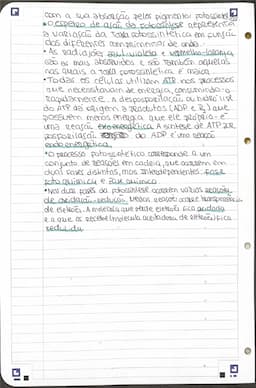 com a sua absorção pelos pigmentos fotossinté
• O espetro de ação da fotossíntese representa
a variação da taxa fotossintética em função
dos diferentes comprimentos de onda.
• As radiações azul-violeta e vermelho-laranja
são as mais absorvidas e são também aquelas
nas quais a taxa fotossintética é maior.
• Todas as células utilizam ATP nos processos
que necessitam de energia, consumindo-o
rapidamente. A desfosforilação ou hidrólise
do ATP dá origem a produtos (ADP e Pi) que
possuem menos energia que ele próprio - é
uma reação exoenergética. A síntese de ATP é
fosforilação do ADP é uma reação
endoenergética.
• O processo fotossintético corresponde a um
conjunto de reações em cadeia, que ocorrem em
duas fases distintas, mas interdependentes: fase
fotoquímica e fase química.
• Nas duas fases da fotossíntese ocorrem várias reações
de oxidação-redução. Nessas reações ocorre transferência
de eletrões. A molécula que cede eletrões fica oxidada
e a que os recebe/molécula aceitadora de eletrões fica
reduzida.